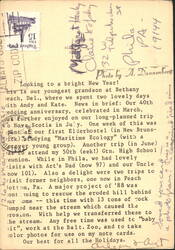 Photo by A. Dannenberg
Looking to a bright New Year!
This is our youngest grandson at Bethany
Beach, Del., where we spent two lovely days
with Andy and Kate. News in brief: Our 40th
wedding anniversary, celebrated in March,
was further enjoyed on our long-planned trip
to Nova Scotia in July. One week of this was
spent at our first Elderhostel (in New Bruns-
wick) studying "Maritime Ecology" (with
a very young group). Another trip (in June)
was to attend my 50th (eek!) Ctn. High School
Reunion. While in Phila, we had lovely
visits with Art's Dad (now 97) and our Uncle
(now 101). Also a delight were two trips to
visit former neighbors, one now in Peach
Bottom, Pa. A major project of '88 was
using to rescue the eroded hill behind
our - this time with 13 tons of rock
dumped near the stream which caused the
erosion. With help we transferred these to
the stream. Any free time was used to "baby
sit", work at the Balt. Zoo, and to take
color photos for use on my note cards.
Our best for all the Holidays.
Phila
PA
19144